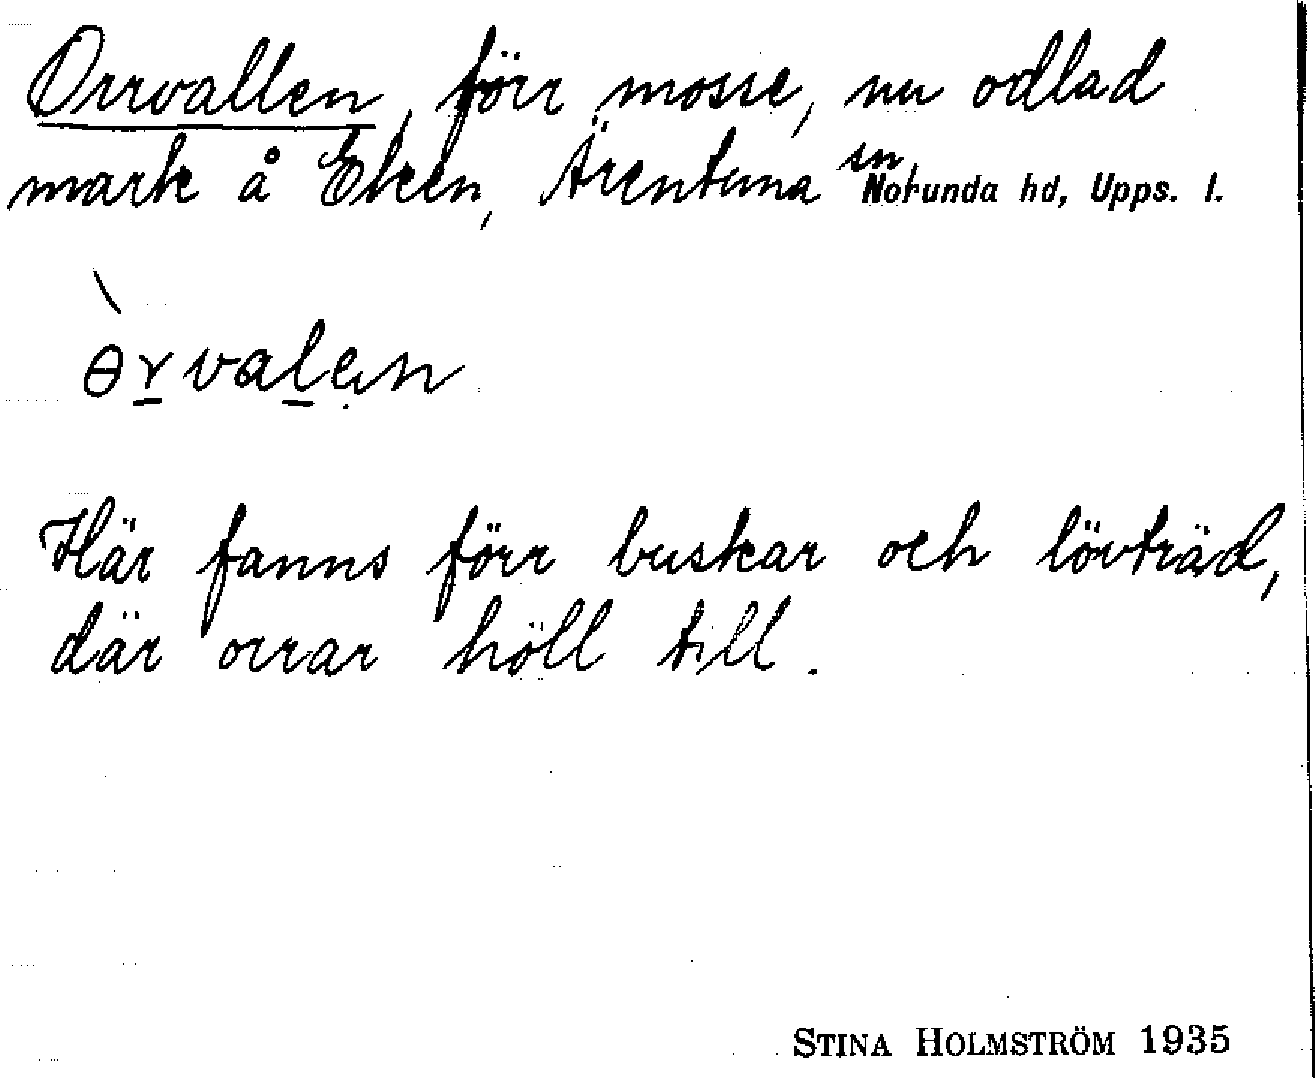 Orrvallen, förr mosse, nu odlad
mark å Eken, Ärentuna sn, Norunda hd, Upps. l.
ɵ̀r̲val̲ən
Här fanns förr buskar och lövträd,
där orrar höll till.
STINA HOLMSTRÖM 1935